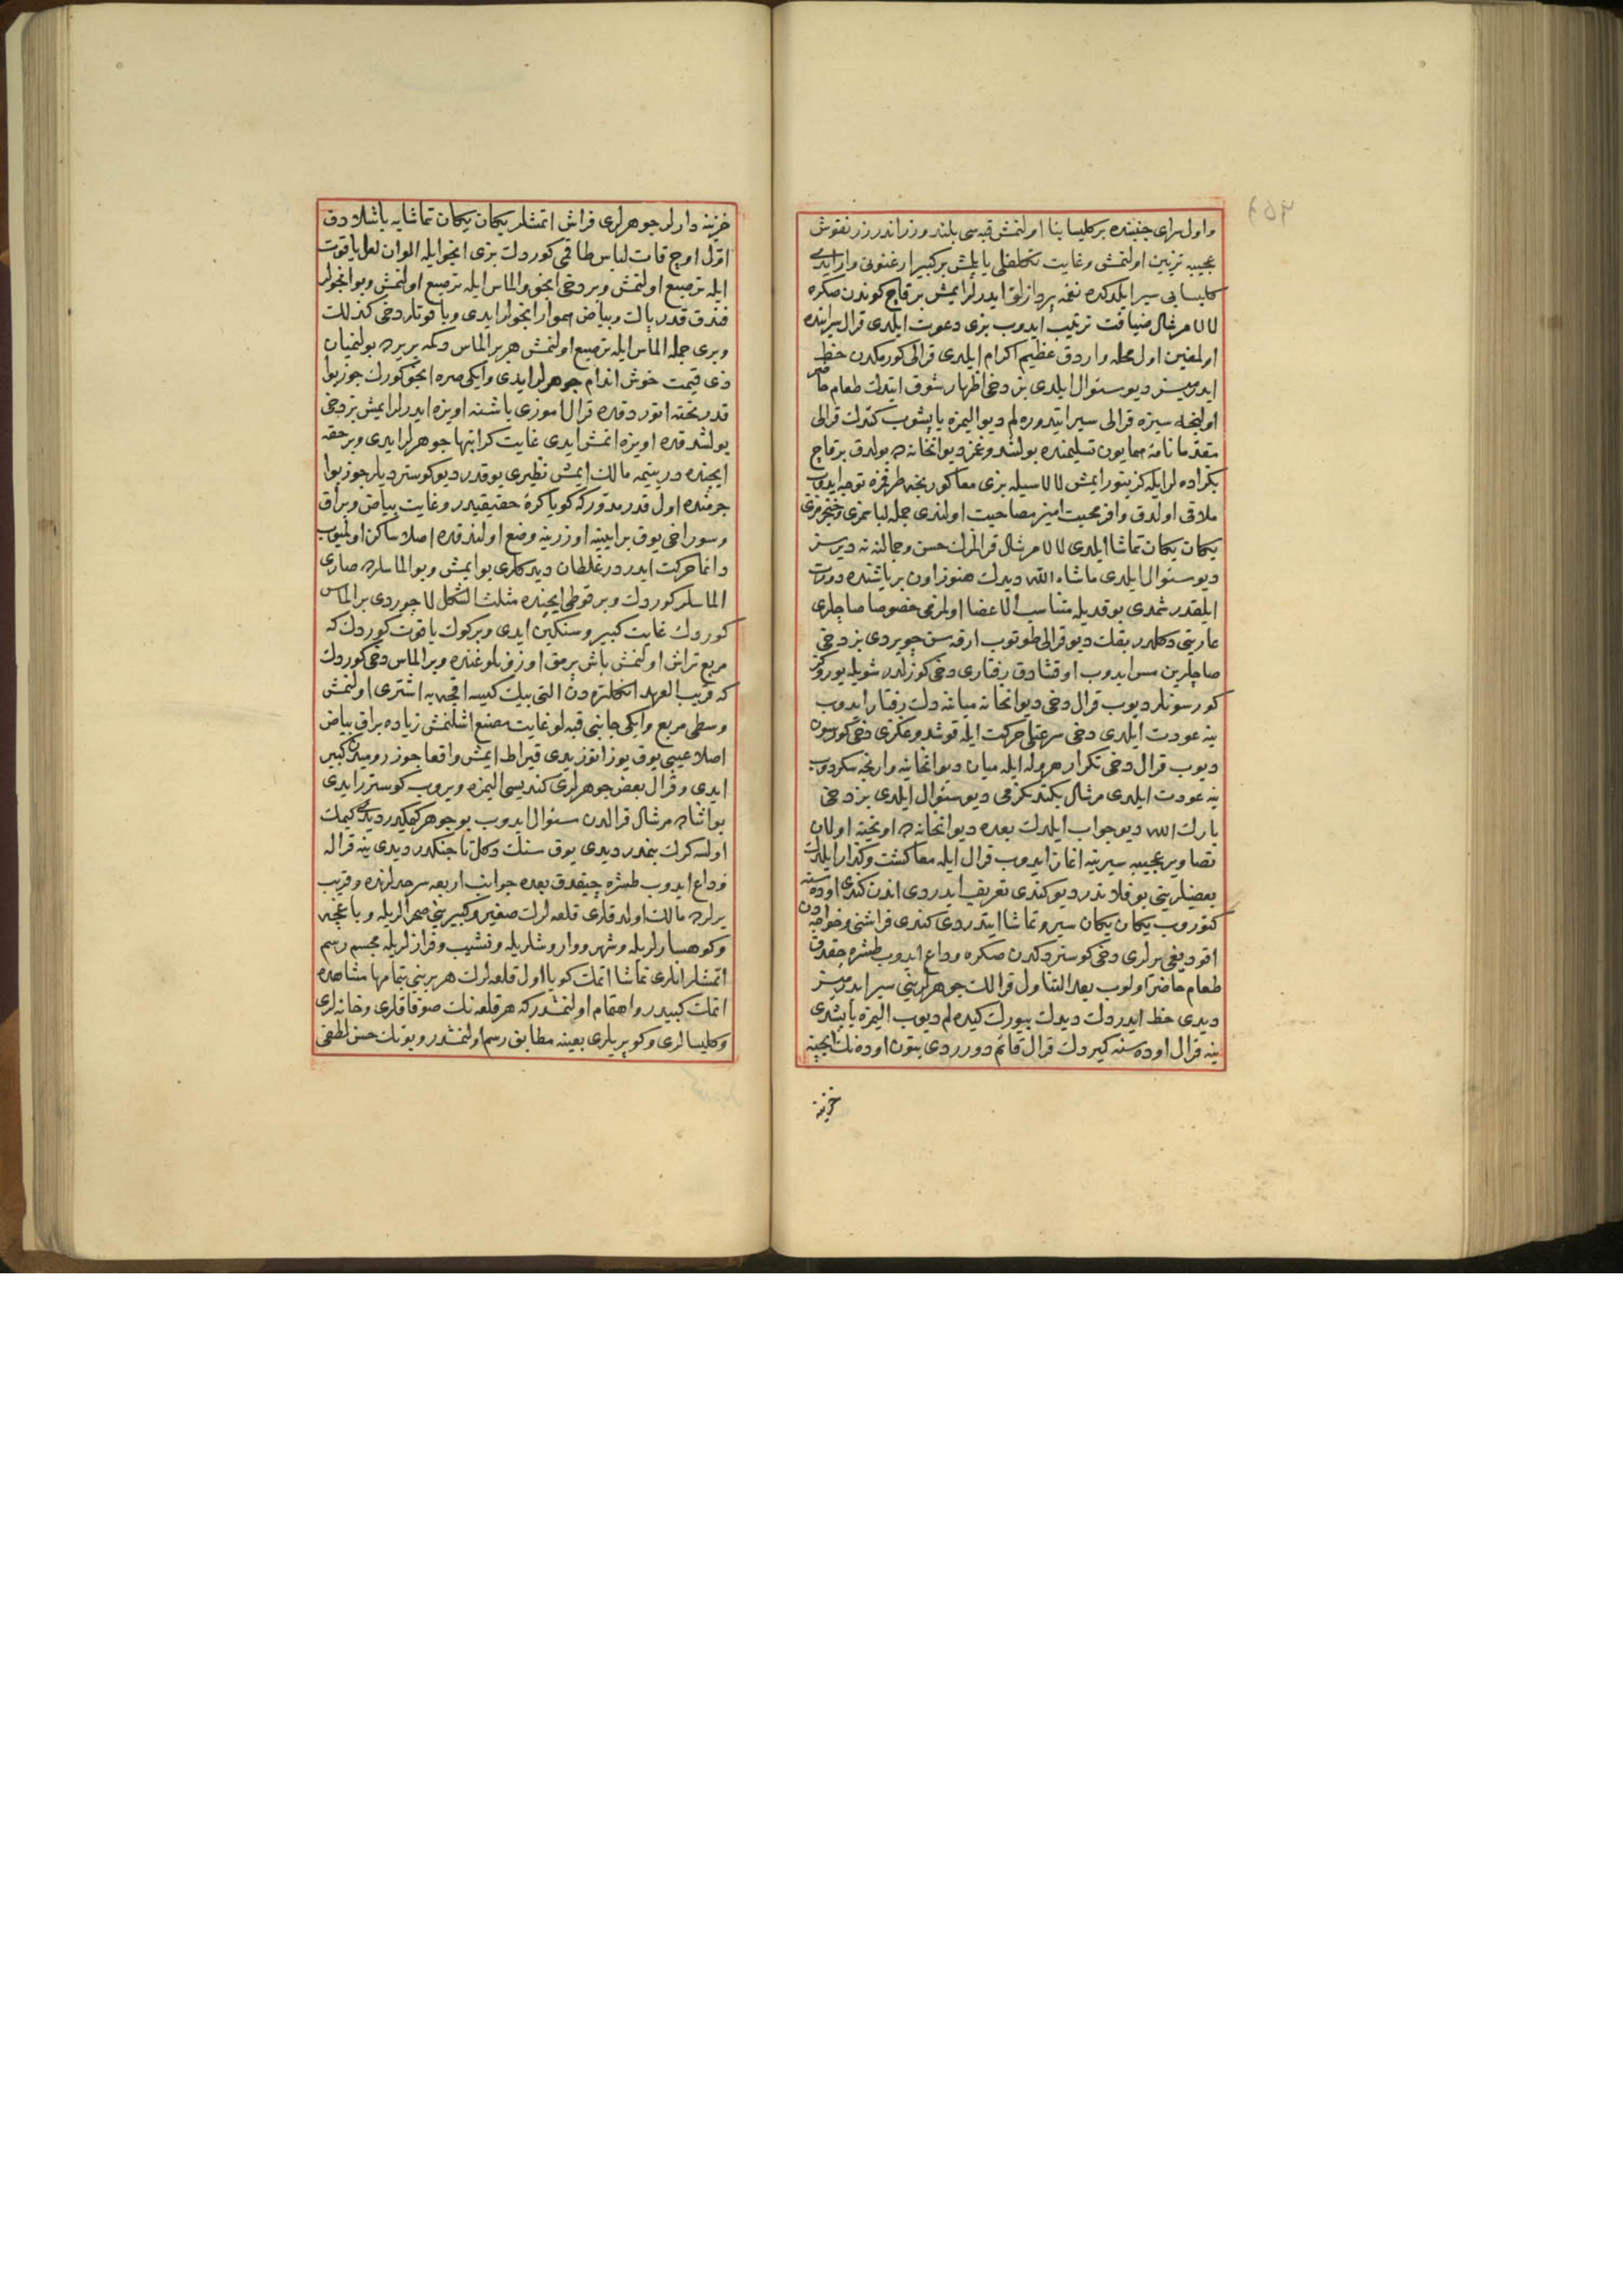 واول سرای جنبنده بر كلیسا بنا اولنمش قبه سی بلند و زراندر زر نقوش
عجیبه تزیین اولنمش و غایت تكلفلی یاپلمش بر كبیر ارغنونی وار ایدی
كلیسایی سیر ایلدكده نغمه پردازلق ایدرلر ایمش بر قاچ كوندن صكره
لالا مرشال ضیافت ترتیب ایدوب بزی دعوت ایلدی قرال سراینده
اولمغین اول محله واردق عظیم اكرام ایلدی قرالی كورمكدن حظ
ایدرمیسز دیو سئوال ایلدی بز دخی اظهار شوق ایتدك طعام حاضر
اولنجه سیزه قرالی سیر ایتدوره لم دیو الیمزه یاپشوب كتدك قرالی
مقدما نامۀ همایون تسلیمنده بولشدوغمز دیوانخانه ده بولدق بر قاچ
بكزاده لر ایله كزینور ایمش لالاسیله بزی معا كوریجه طرفمزه توجه ایدوب
ملاقی اولدق وافر محبت امیز مصاحبت اولندی جمله لباسمزی و خنجرمزی
یكان یكان تماشا ایلدی لالا مرشال قرالمزك حسن و جمالنه نه دیرسز
دیو سئوال ایلدی ماشاء الله دیدك هنوز اون بر یاشنده درت
ایلقدر شمدی بو قدیله متناسب الاعضا اولمزمی خصوصا صاچلری
عاریتی دكلدر بقك دیو قرالی طوتوب ارقه سن چویردی بز دخی
صاچلرین مس ایدوب اوقشادق رفتاری دخی كوزلدر شویله یوروكز
كورسونلر دیوب قرال دخی دیوانخانه میاننه دك رفتار ایدوب
ینه عودت ایلدی دخی سرعتلی حركت ایله قوشدوغكزی دخی كورسون
دیوب قرال دخی تكرار هروله ایله میان دیوانخانیه وارنجه سكردوب
ینه عودت ایلدی مرشال بكندیكزمی دیو سئوال ایلدی بز دخی
بارك الله دیو جواب ایلدك بعده دیوانخانه ده اویخته اولان
تصاویر عجیبه سیرینه اغاز ایدوب قرال ایله معا كشت و كذار ایلدك
بعضیلرینی بو فلاندر دیو كندی تعریف ایدردی اندن كندی اوده سنه
كتوروب یكان یكان سیر و تماشا ایتدردی كندی فراشنی و خواجه دن
اقودیغی یرلری دخی كوستردكدن صكره وداع ایدوب طشره چقدق
طعام حاضر اولوب بعد التناول قرالك جوهرلرینی سیر ایدرمیسز
دیدی حظ ایدردك دیدك بیورك كیده لم دیوب الیمزه یاپشدی
ینه قرال اوده سنه كیردك قرال قائم دورردی بتون اوده نك ایچنه
خزینه
خزینه دارلر جوهرلری فراش اتمشلر یكان یكان تماشایه باشلادق
اول اوچ قات لباس طاقمی كوردك بزی انجو ایله الوان لعل یاقوت
ایله ترصیع اولنمش و بر دخی انجو والماس ایله ترصیع اولنمش و بو انجولر
فندق قدر پاك و بیاض هموار انجولر ایدی و یاقوتلر دخی كذلك
و بری جمله الماس ایله ترصیع اولنمش هر بر الماس دكمه یرده بولنمیان
ذی قیمت خوش اندام جوهرلر ایدی وایكی صره انجو كوردك جوزبوا
قدر تخته اتوردقده قرال اموزی باشنه اویزه ایدرلر ایمش بز دخی
بولشدقده اویزه اتمش ایدی غایت كرانبها جوهرلر ایدی و بر حقه
ایچنده در یتیمه مالك ایمش نظیری یوقدر دیو كوستردیلر جوزبوا
جرمنده اول قدر مدور كه كویا كرۀ حقیقیدر و غایت بیاض و براق
و سوراخی یوق بر ایینه اوزرینه وضع اولندقده اصلا ساكن اولمیوب
دائما حركت ایدر در غلطان دیدكلری بو ایمش و بو الماسلرده صاری
الماسلر كوردك و بر قوطی ایچنده مثلث الشكل لاجوردی بر الماس
كوردك غایت كبیر و سنكین ایدی و بر كوك یاقوت كوردك كه
مربع تراش اولنمش باش پرمق اوزونلوغنده و بر الماس دخی كوردك
كه قریب العهد انكلتره دن التی بیك كیسه اقچه یه اشترا اولنمش
وسطی مربع وایكی جانبی قبه لو غایت مصنع اشلنمش زیاده براق بیاض
اصلا عیبی یوق یوز اتوز یدی قیراط ایمش واقعا جوز رومیدن كبیر
ایدی و قرال بعض جوهرلری كندیسی الیمزه ویروب كوسترر ایدی
بو اثناده مرشال قرالدن سئوال ایدوب بو جوهر كیمكدر دیدی كیمك
اولسه كرك بنمدر دیدی یوق سنك دكل تاجنكدر دیدی ینه قراله
وداع ایدوب طشره چیقدق بعده جوانب اربعه سرحدلرنده و قریب
یرلرده مالك اولدقلری قلعه لرك صغیر و كبیرینی صحرالریله و باغچه
و كوهسارلریله و شهر و واروشلریله و نشیب و فرازلریله مجسم رسم
اتمشلر انلری تماشا اتمك كویا اول قلعه لرك هر برینی بتمامها مشاهده
اتمك كبیدر و اهتمام اولنمشدر كه هر قلعه نك صوقاقلری و خانه لری
و كلیسالری و كوپریلری بعینه مطابق رسم اولنمشدر و بونك حسن لطفی